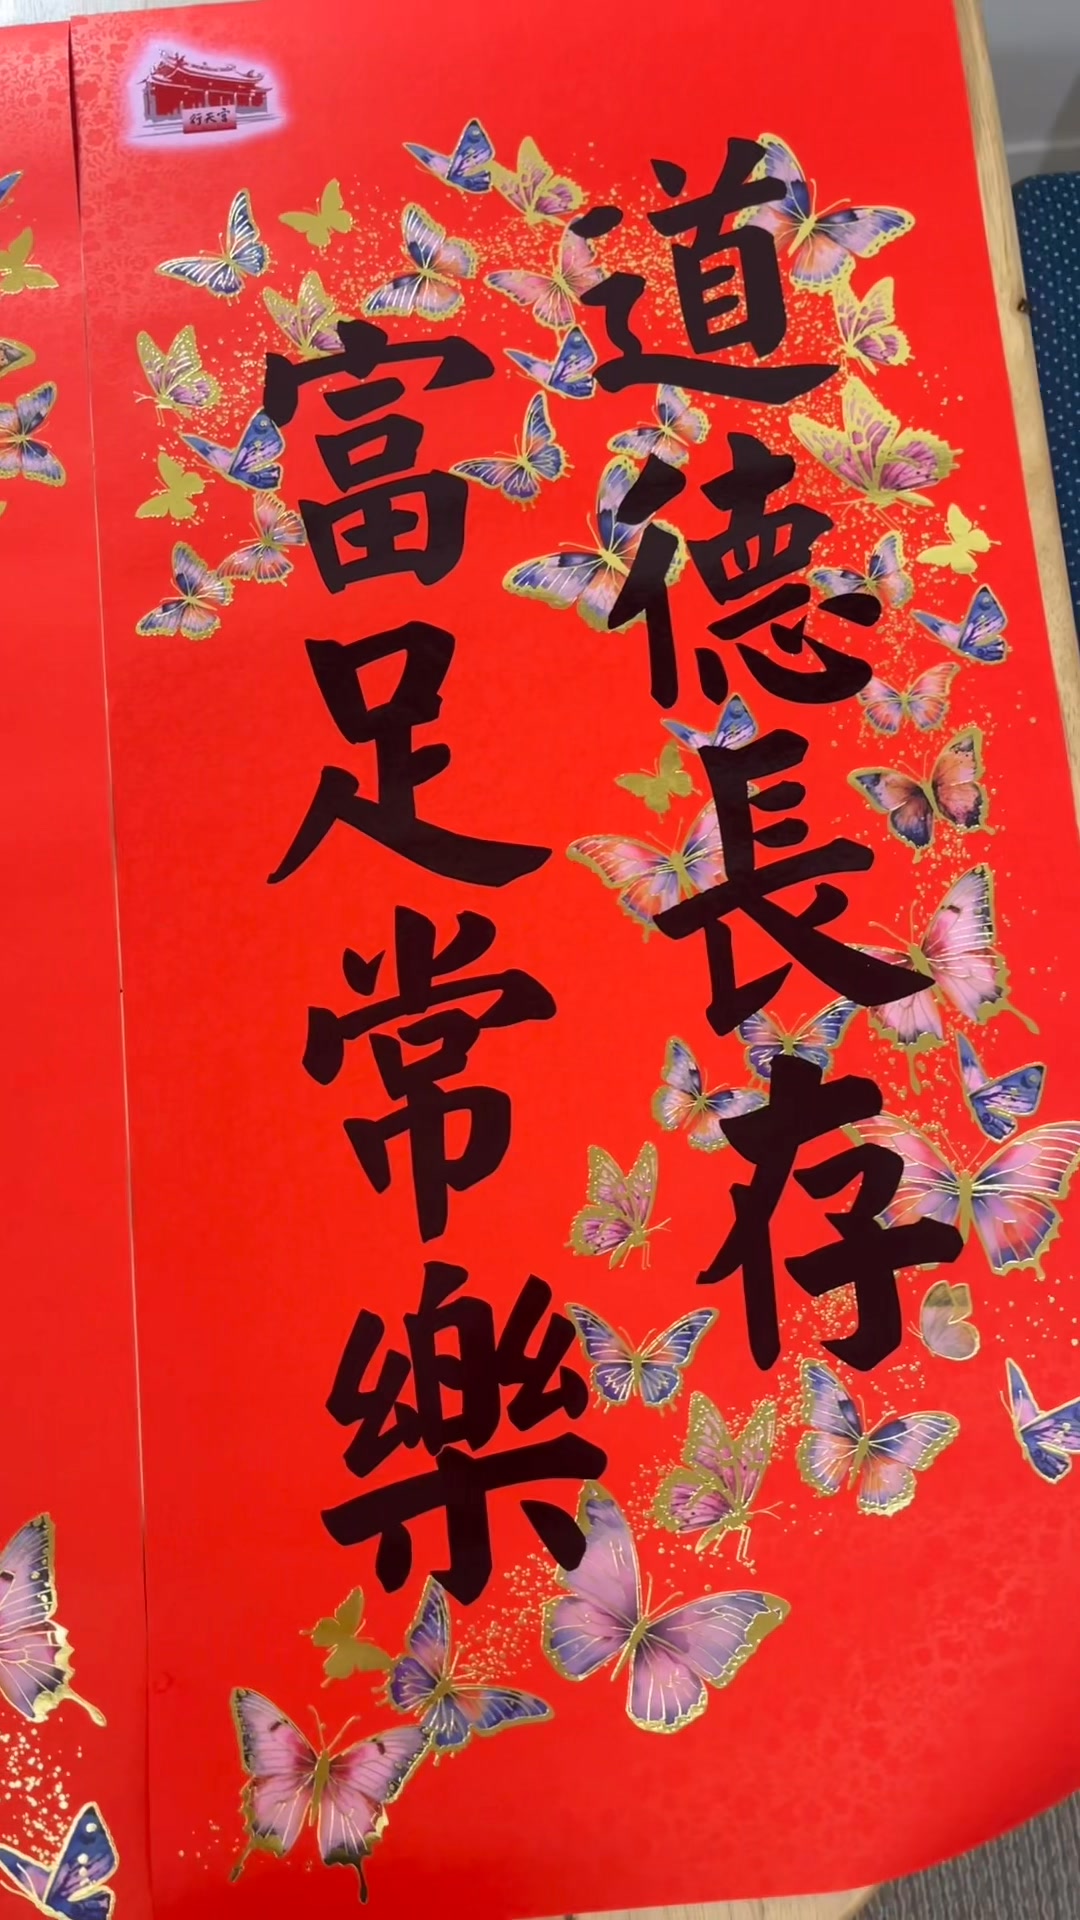 道德長存
富足常樂
行天宮